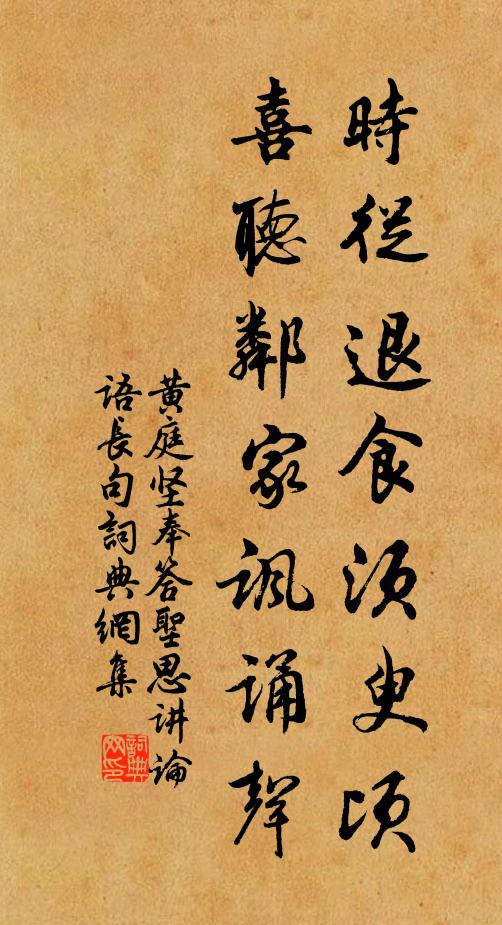 時從退食須臾頃
喜聽鄰家諷誦聲
黄庭坚奉答聖思讲論
語長句詞典網集
詞典
网印